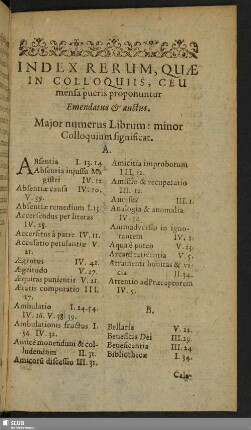 INDEX RERUM, QUÆ
IN COLLOQUIIS, CEU
mensa pueris proponuntur
Emendatus & auctus.
Major numerus Librum: minor
Colloquium significat.
A.
ABsentia I. 13. 14.
Absentia injussu Magistri
IV. 12.
Absentiæ causa IV. 20.
V. 39.
Absentiæ remedium I. 15.
Accersendus per literas
IV. 28.
Accersitus à patre IV. 11.
Accusatio petulantiæ V.
Ægrotus IV. 42.
Ægritudo V. 27.
Æquitas punientis V. 21.
Ætatis comparatio III.
17.
Ambulatio I. 24. 54.
IV. 16. V. 38. 39.
Ambulationis fructus I.
IV. 32.
Amicè monendum & colludendum
II. 31.
Amicorū discessio III. 31.
Amicitia improborum
III. 32.
Amissio & recuperatio
III. 12.
III. 1.
Analogia & anomalia
IV. 32.
Animadversio in ignorantem
IV. 2.
Aquæ poteo V. 23.
V. 5.
Atramenti
II. 34.
Attentio ad Præceptorem
IV. 5.
B.
Bellaria V. 22.
Beneficia Dei III. 29.
Beneficentia III. 24.
Bibliothecæ I. 34.
SLUB